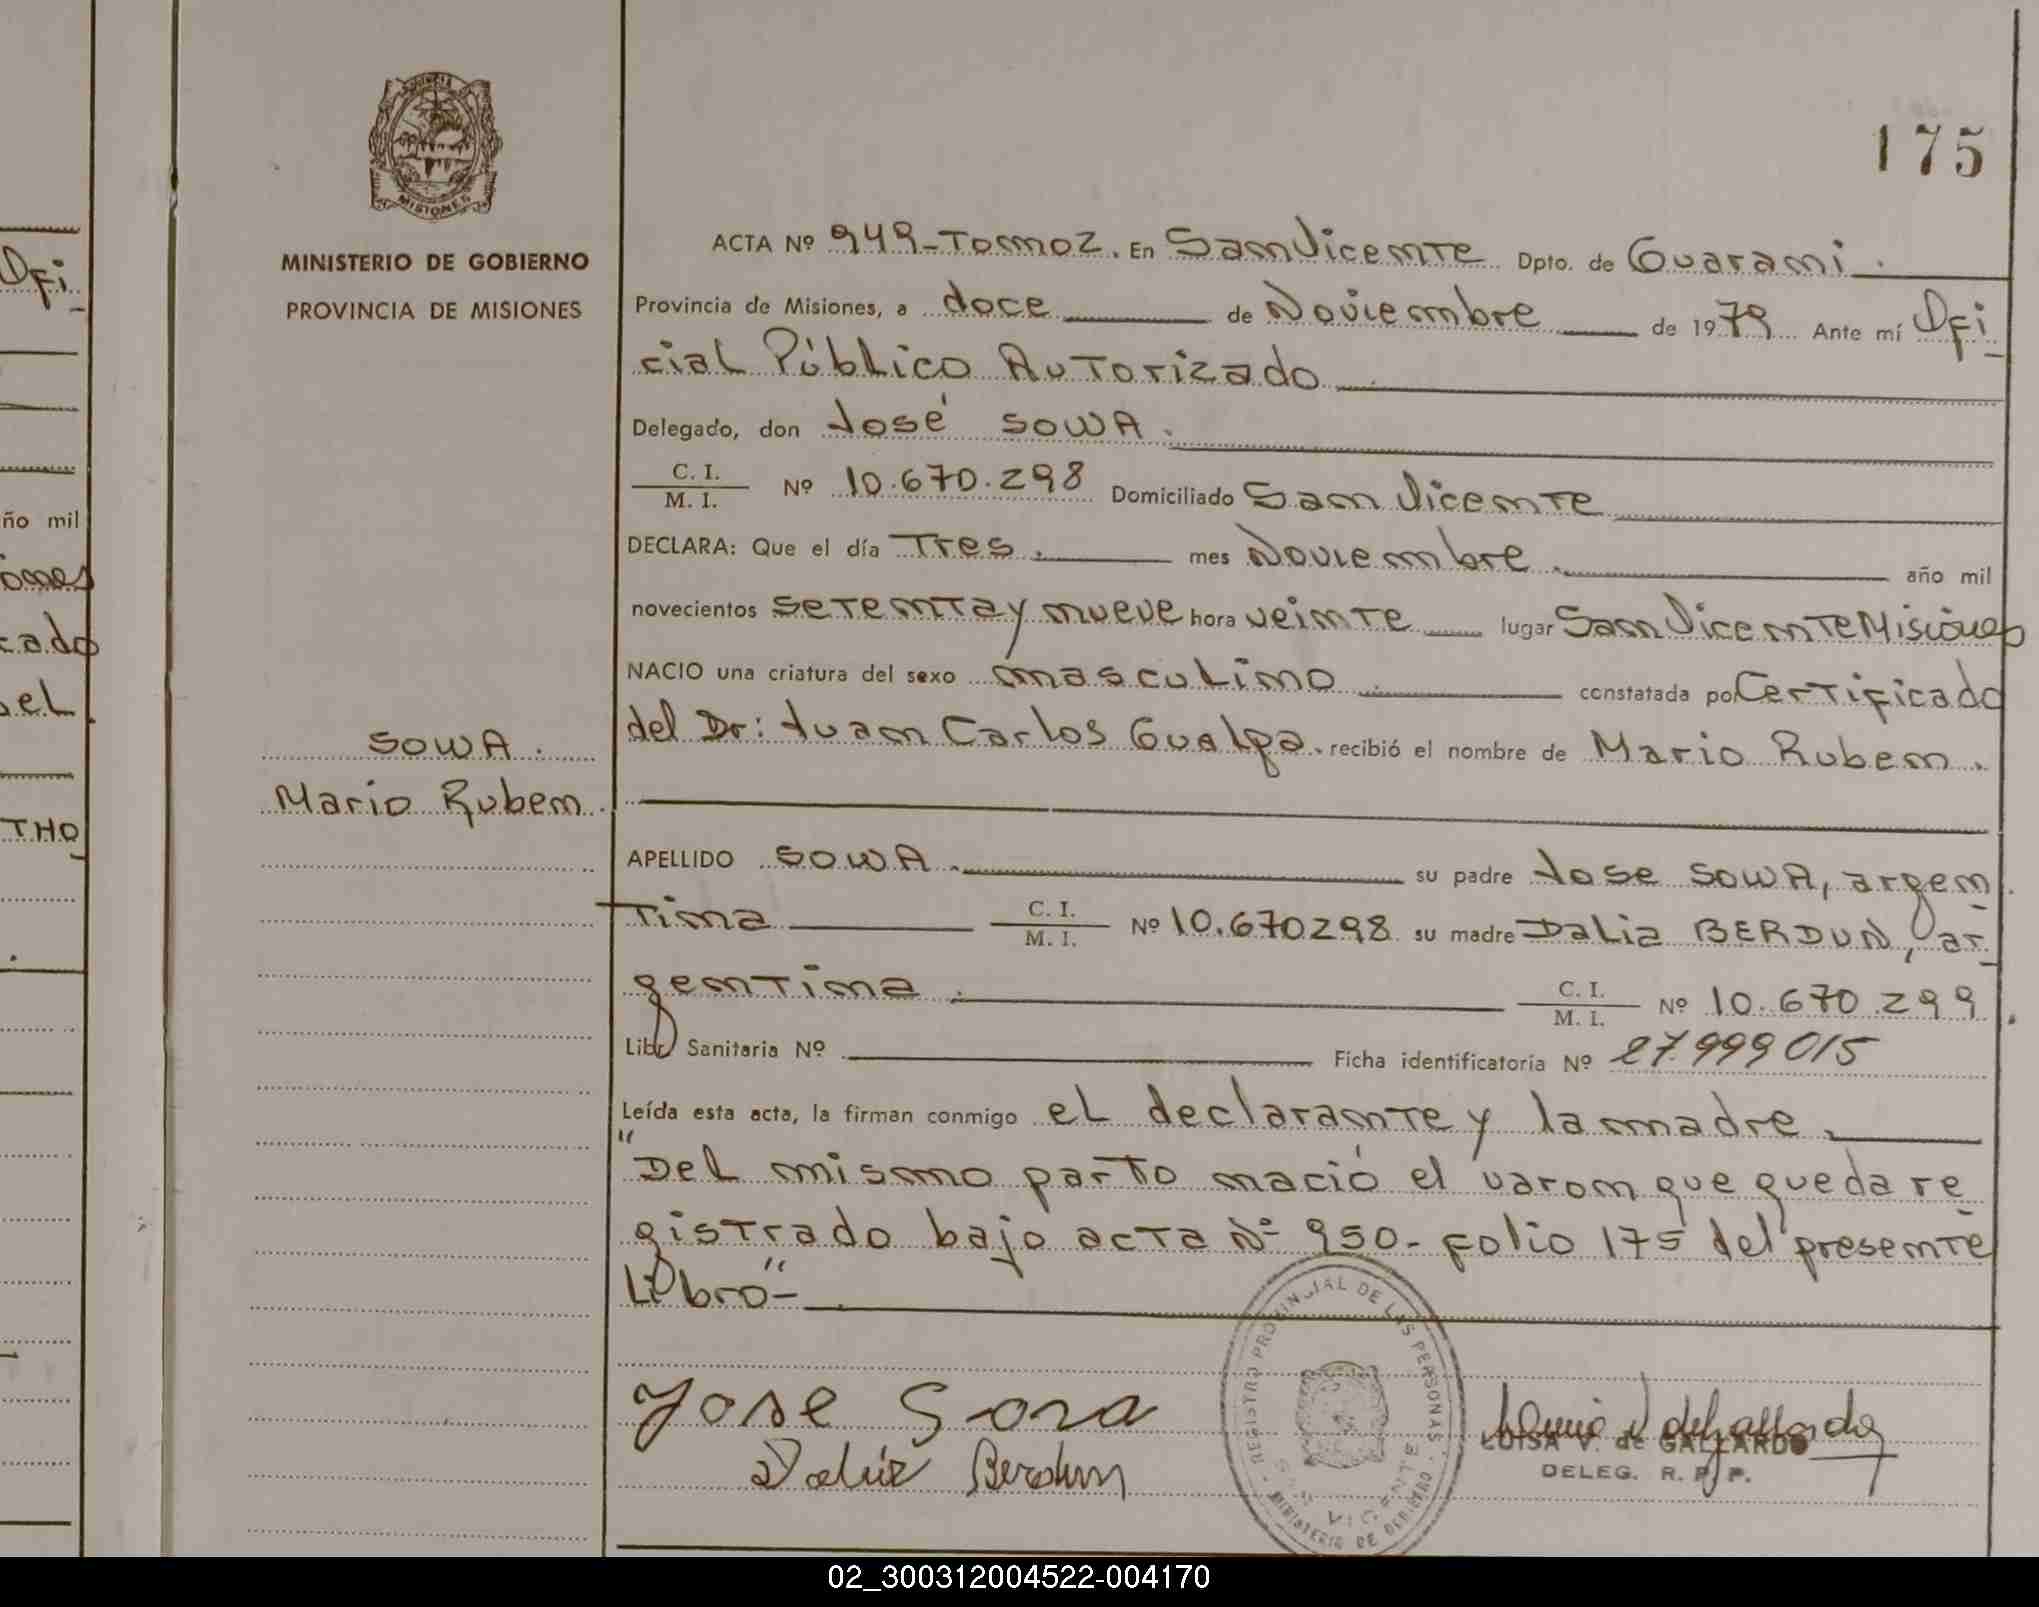 175
MINISTERIO DE GOBIERNO
PROVINCIA DE MISIONES
ACTA Nº 949-Tomo2. En San Vicente Dpto. de Guarani.
Provincia de Misiones, a doce de Noviembre de 1979 Ante mí Ofi
cial Público Autorizado
Delegado, don José SOWA.
C. I.
M. I. Nº 10.670.298 Domiciliado San Vicente
DECLARA: Que el día Tres. mes Noviembre. año mil
novecientos setenta y nueve hora veinte lugar San Vicente Misiones
NACIO una criatura del sexo masculino. constatada por Certificado
del Dr: Juan Carlos Gualpa. recibió el nombre de Mario Ruben.
SOWA.
Mario Ruben.
APELLIDO SOWA. su padre Jose SOWA, argen
tina C. I.
M. I. Nº 10.670298 su madre Dalia BERDUN, ar
gentina. C. I.
M. I. Nº 10.670.299.
Libr Sanitaria Nº Ficha identificatoria Nº 27.999015
Leída esta acta, la firman conmigo el declarante y la madre.
"Del mismo parto nació el varon que queda re
gistrado bajo acta Nº 950- folio 175 del presente
Libro"-
Jose Sova
Dalia Berdun
REGISTRO PROVINCIAL DE LAS PERSONAS
SAN VICENTE
MINISTERIO DE GOBIERNO
LUISA V. de GALLARDO
DELEG. R. P. P.
Ofi
ño mil
iones
cado
el
THO
02_300312004522-004170